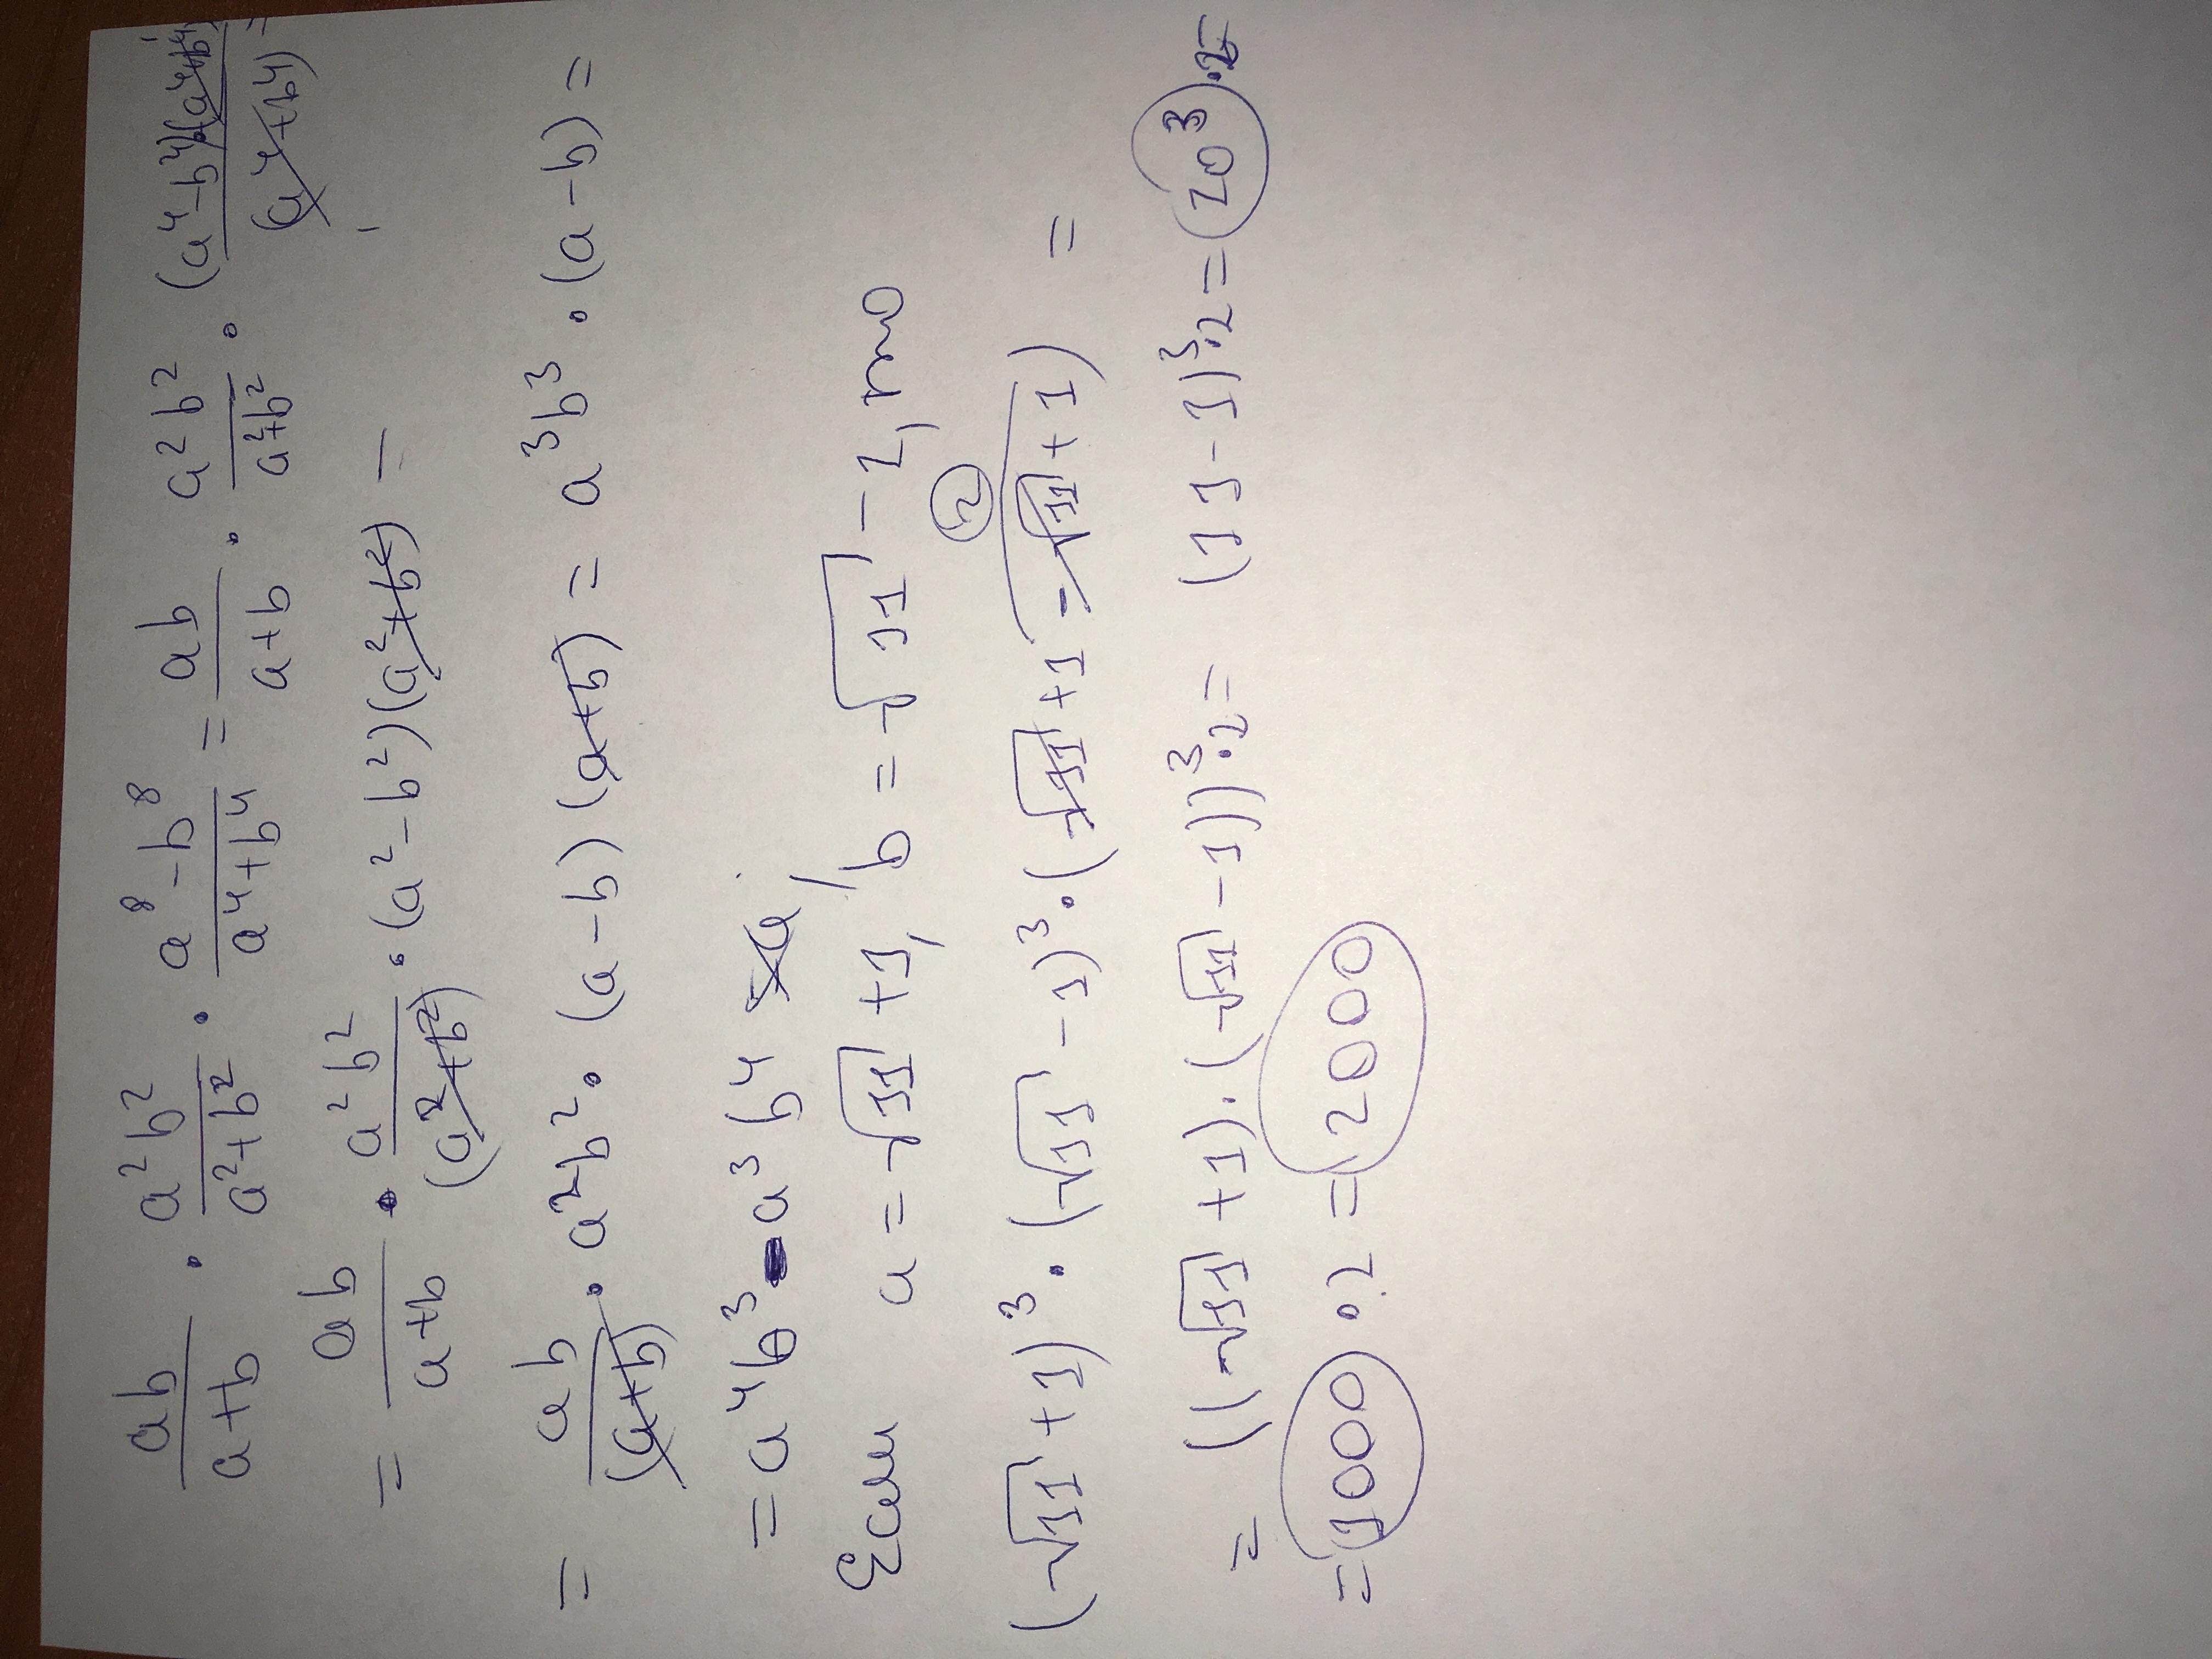 ab/(a+b) · a²b²/(a²+b²) · (a⁸-b⁸)/(a⁴+b⁴) = ab/(a+b) · a²b²/(a²+b²) · (a⁴-b⁴)(a⁴+b⁴)/(a⁴+b⁴) =
= ab/(a+b) · a²b²/(a²+b²) · (a²-b²)(a²+b²) =
= ab/(a+b) · a²b² · (a-b)(a+b) = a³b³ · (a-b) =
= a⁴b³ - a³b⁴
Если a = √11 + 1, b = √11 - 1, то
(√11 + 1)³ · (√11 - 1)³ · (√11 + 1 - √11 + 1) =
2
= ((√11 + 1) · (√11 - 1))³ · 2 = (11 - 1)³ · 2 = 10³ · 2
= 1000 · 2 = 2000